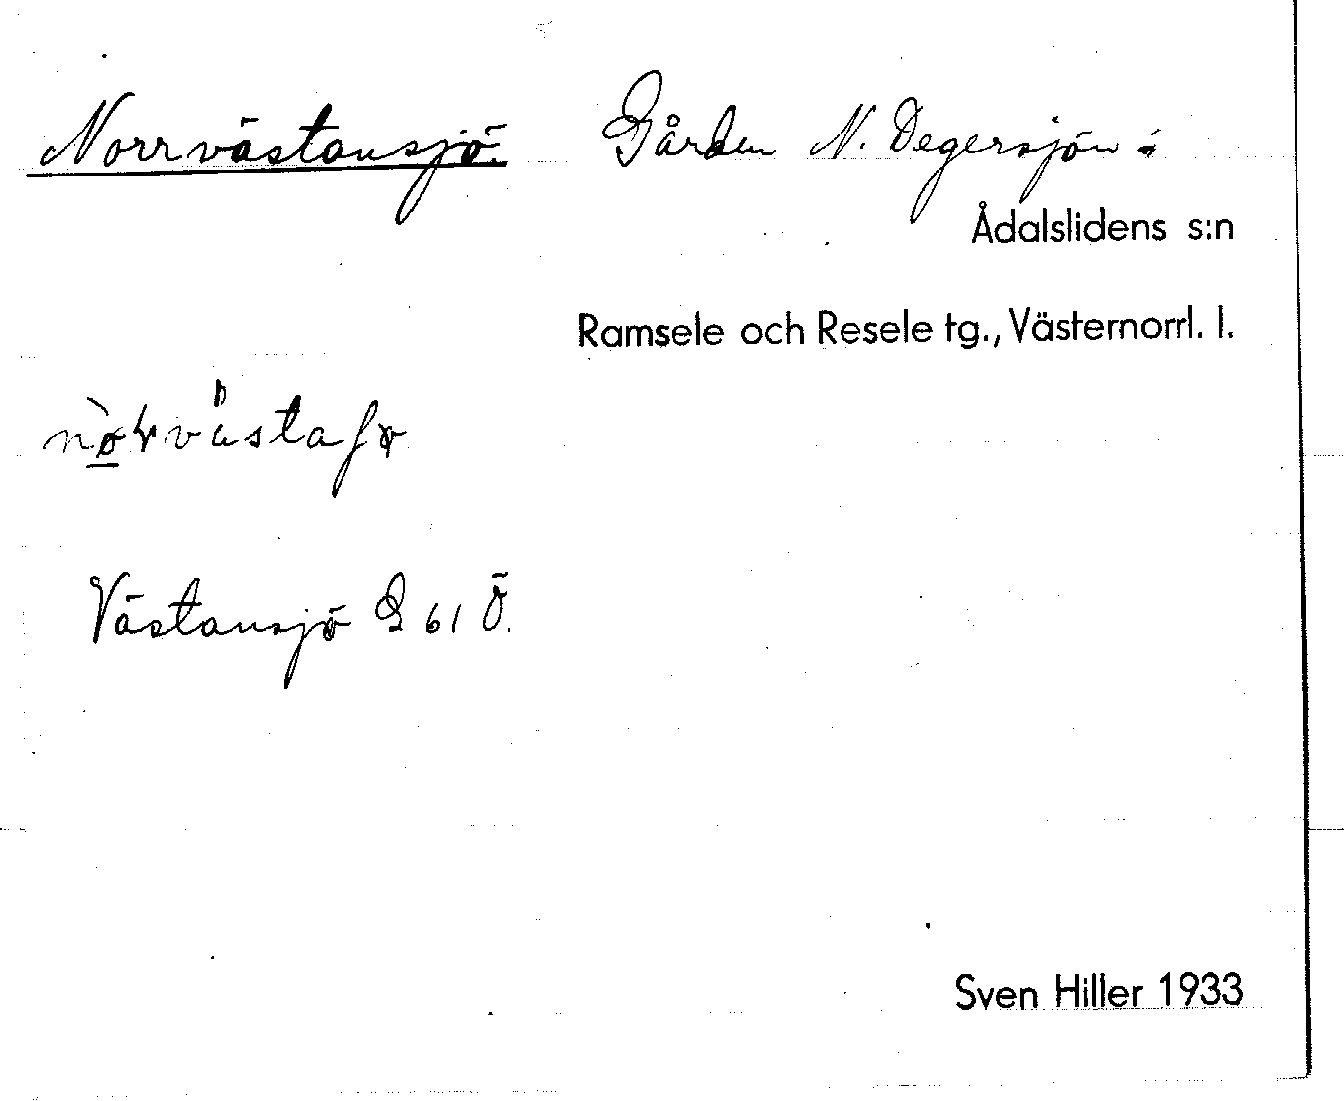 Norrvästansjö. Gården N. Degersjön i
Ådalslidens s:n
Ramsele och Resele tg., Västernorrl. l.
Västansjö G 61 Ö.
Sven Hiller 1933